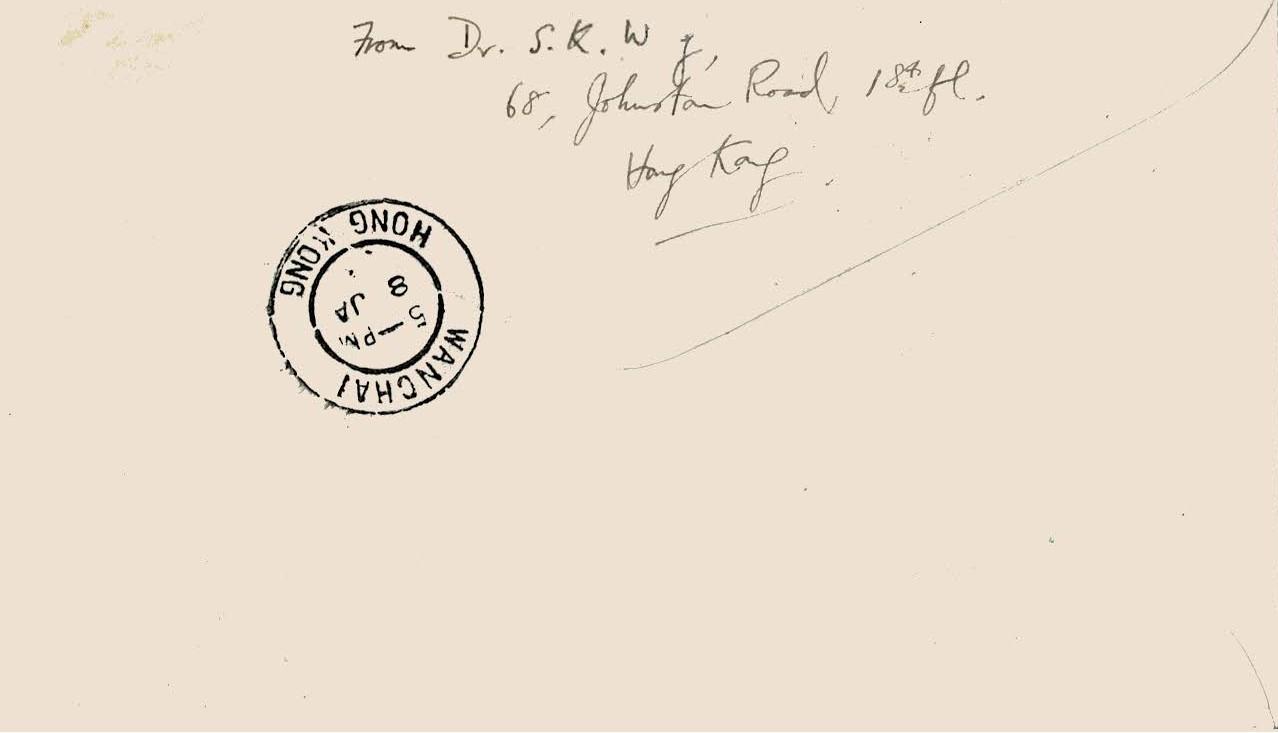 From Dr. S. K. W g,
68, Johnston Road, 18th fl.
Hong Kong.
WANCHAI
5—PM
8 JA
HONG KONG